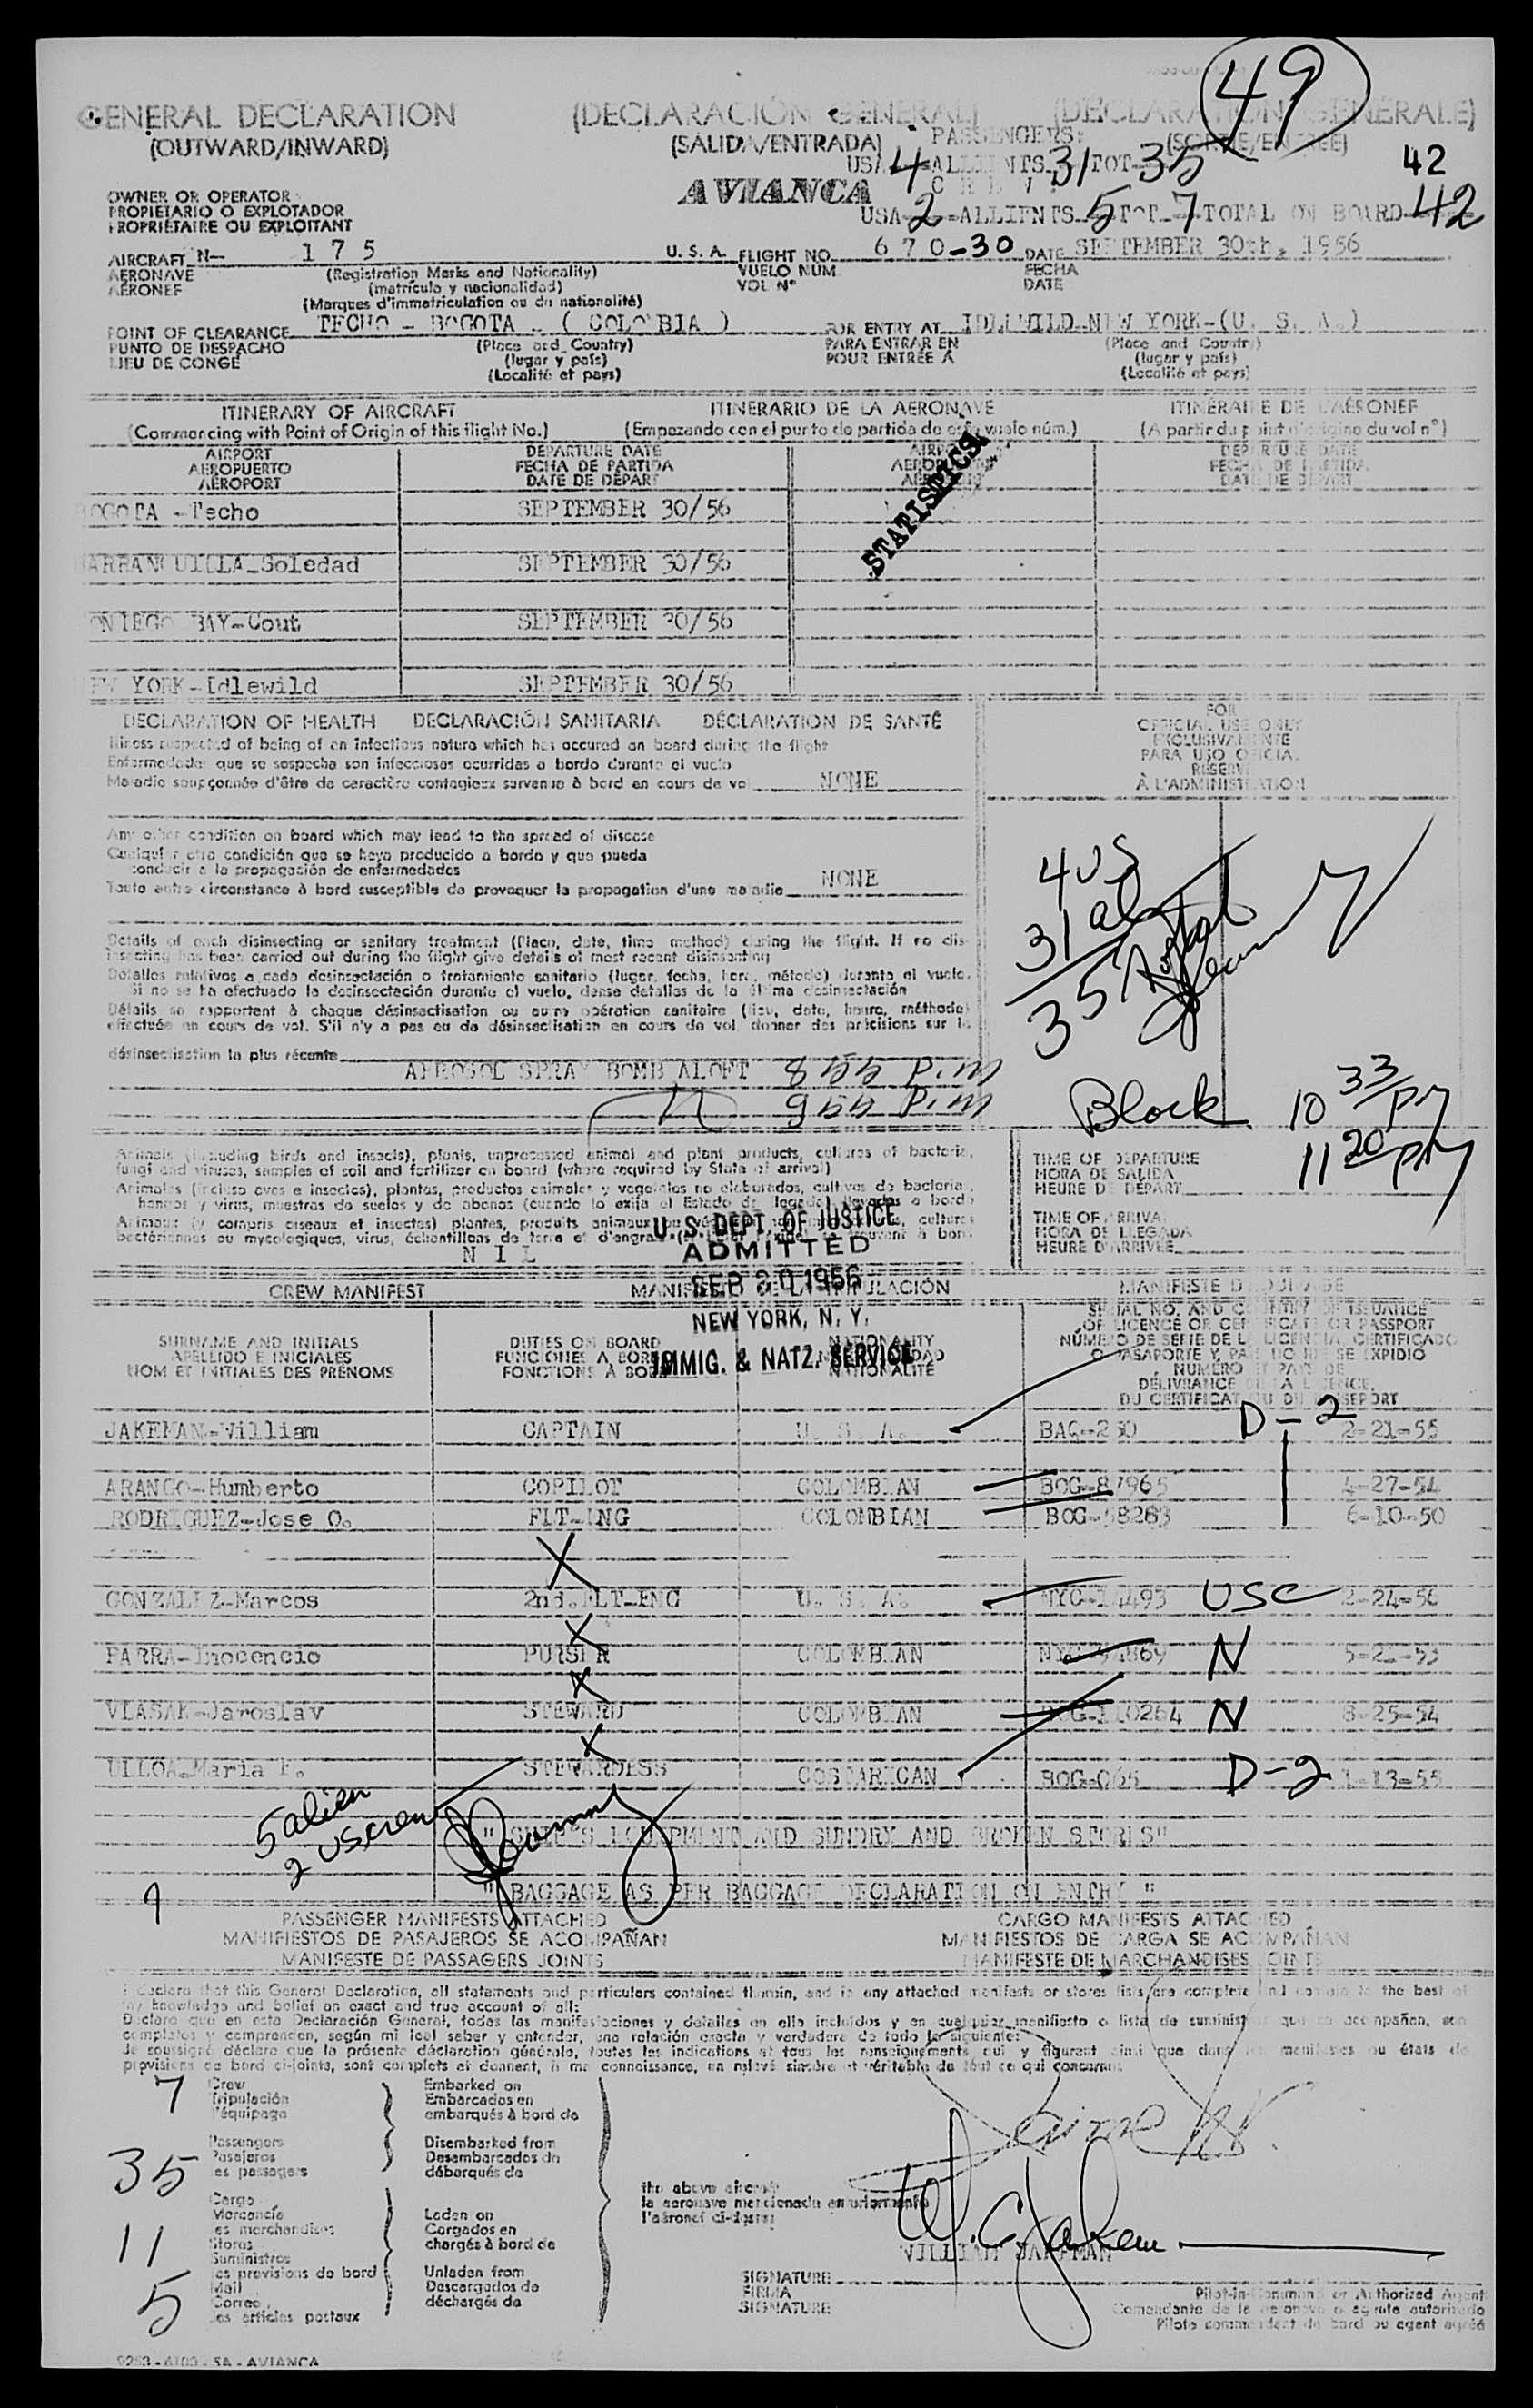 49
GENERAL DECLARATION (DECLARACIÓN GENERAL) (DECLARATION GÉNÉRALE)
(OUTWARD/INWARD) (SALIDA/ENTRADA) (SORTIE/ENTRÉE)
PASSENGERS:
USA 4 ALLIENTS 31 TOT 35 42
AVIANCA CREW:
USA-2-ALLIENTS 5 TOT-7-TOTAL ON BOARD 42
OWNER OR OPERATOR
PROPIETARIO O EXPLOTADOR
PROPRIÉTAIRE OU EXPLOITANT
AIRCRAFT N- 175 U. S. A. FLIGHT NO. 670-30 DATE SEPTEMBER 30th, 1956
AERONAVE (Registration Marks and Nationality) VUELO NUM. FECHA
AÉRONEF (matrícula y nacionalidad) VOL N° DATE
(Marques d'immatriculation ou du nationalité)
POINT OF CLEARANCE TECHO - BOGOTA - ( COLOMBIA ) FOR ENTRY AT IDLEWILD-NEW YORK-(U. S. A.)
PUNTO DE DESPACHO (Place and Country) PARA ENTRAR EN (Place and Country)
LIEU DE CONGÉ (lugar y país) POUR ENTRÉE A (lugar y país)
(Localité et pays) (Localité et pays)
ITINERARY OF AIRCRAFT ITINERARIO DE LA AERONAVE ITINÉRAIRE DE L'AÉRONEF
(Commencing with Point of Origin of this flight No.) (Empezando con el punto de partida de este vuelo núm.) (A partir du point d'origine du vol n°)
AIRPORT DEPARTURE DATE AIRPORT DEPARTURE DATE
AEROPUERTO FECHA DE PARTIDA AEROPUERTO FECHA DE PARTIDA
AÉROPORT DATE DE DÉPART AÉROPORT DATE DE DÉPART
STATISTICS
BOGOTA - Techo SEPTEMBER 30/56
BARRANQUILLA-Soledad SEPTEMBER 30/56
MONTEGO BAY-Cout SEPTEMBER 30/56
NEW YORK-Idlewild SEPTEMBER 30/56
DECLARATION OF HEALTH DECLARACIÓN SANITARIA DÉCLARATION DE SANTÉ
FOR
OFFICIAL USE ONLY
EXCLUSIVAMENTE
PARA USO OFICIAL
RÉSERVÉ
À L'ADMINISTRATION
Illness suspected of being of an infectious nature which has occured on board during the flight
Enfermedades que se sospecha son infecciosas ocurridas a bordo durante el vuelo
Maladie soupçonnée d'être de caractère contagieux survenue à bord en cours de vol NONE
Any other condition on board which may lead to the spread of disease
Cualquier otra condición que se haya producido a bordo y que pueda
conducir a la propagación de enfermedades
Toute autre circonstance à bord susceptible de provoquer la propagation d'une maladie NONE
4 US
31 al
35 Total
Details of each disinsecting or sanitary treatment (Place, date, time method) during the flight. If no dis-
insecting has been carried out during the flight give details of most recent disinsecting
Detalles relativos a cada desinsectación o tratamiento sanitario (lugar, fecha, hora, método) durante el vuelo.
Si no se ha efectuado la desinsectación durante el vuelo, dense detalles de la última desinsectación
Détails se rapportant à chaque désinsectisation ou autre opération sanitaire (lieu, date, heure, méthode)
effectuée en cours de vol. S'il n'y a pas eu de désinsectisation en cours de vol, donner des précisions sur la
désinsectisation la plus récente
AEROSOL SPRAY BOMB ALOFT
Block 10 33 PM
11 20 PM
Animals (including birds and insects), plants, unprocessed animal and plant products, cultures of bacteria,
fungi and viruses, samples of soil and fertilizer on board (where required by State of arrival)
Animales (incluso aves e insectos), plantas, productos animales y vegetales no elaborados, cultivos de bacterias,
hongos y virus, muestras de suelos y de abonos (cuando lo exija el Estado de llegada) llevados a bordo
Animaux (y compris oiseaux et insectes) plantes, produits animaux ou cultures
bactériennes ou mycologiques, virus, échantillons de terre et d'engrais
NIL
TIME OF DEPARTURE
HORA DE SALIDA
HEURE DE DÉPART
TIME OF ARRIVAL
HORA DE LLEGADA
HEURE D'ARRIVÉE
U. S. DEPT. OF JUSTICE
ADMITTED
SEP 30 1956
NEW YORK, N. Y.
IMMIG. & NATZ. SERVICE
CREW MANIFEST MANIFIESTO DE LA TRIPULACIÓN MANIFESTE D'ÉQUIPAGE
SURNAME AND INITIALS DUTIES ON BOARD NATIONALITY SERIAL NO. AND COUNTRY OF ISSUANCE
APELLIDO E INICIALES FUNCIONES A BORDO NACIONALIDAD OF LICENCE OR CERTIFICATE OR PASSPORT
NOM ET INITIALES DES PRÉNOMS FONCTIONS A BORD NATIONALITÉ NÚMERO DE SERIE DE LA LICENCIA, CERTIFICADO
O PASAPORTE Y PAIS DONDE SE EXPIDIO
NUMÉRO ET PAYS DE
DÉLIVRANCE DE LA LICENCE,
DU CERTIFICAT OU DU PASSEPORT
JAKEMAN-William CAPTAIN U. S. A. BAQ-230 D-2 2-21-55
ARANGO-Humberto COPILOT COLOMBIAN BOG-87965 4-27-54
RODRIGUEZ-Jose O. FLT-ENG COLOMBIAN BOG-58263 6-10-50
X
GONZALEZ-Marcos 2nd.FLT-ENG U. S. A. NYC-14493 USC 2-24-56
X
PARRA-Inocencio PURSER COLOMBIAN N
X
VLASAK-Jaroslav STEWARD COLOMBIAN BOG-110264 N 8-25-54
X
ULLOA-Maria F. STEWARDESS COSTARICAN BOG-065 D-2 1-13-55
5 alien
2 US crew
"SHIP'S EQUIPMENT AND SUNDRY AND BROKEN STORES"
"BAGGAGE AS PER BAGGAGE DECLARATION ON ENTRY"
PASSENGER MANIFESTS ATTACHED CARGO MANIFESTS ATTACHED
MANIFIESTOS DE PASAJEROS SE ACOMPAÑAN MANIFIESTOS DE CARGA SE ACOMPAÑAN
MANIFESTE DE PASSAGERS JOINTS MANIFESTE DE MARCHANDISES JOINTS
I declare that this General Declaration, all statements and particulars contained therein, and in any attached manifests or stores lists are complete and contain to the best of
my knowledge and belief an exact and true account of all:
Declaro que en esta Declaración General, todas las manifestaciones y detalles en ella incluidos y en cualquier manifiesto o lista de suministros que se acompañan, son
completos y comprenden, según mi leal saber y entender, una relación exacta y verdadera de todo lo siguiente:
Je soussigné déclare que la présente déclaration générale, toutes les indications et tous les renseignements qui y figurent ainsi que dans les manifestes ou états de
provisions de bord ci-joints, sont complets et donnent, à ma connaissance, un relevé sincère et véritable de tout ce qui concerne:
7 Crew Embarked on
Tripulación Embarcados en
l'équipage embarqués à bord de
35 Passengers Disembarked from
Pasajeros Desembarcados de
les passagers débarqués de
the above aircraft
la aeronave mencionada anteriormente
l'aéronef ci-dessus
11 Cargo
Mercancía Laden on
les marchandises Cargados en
Stores chargés à bord de
Suministros
les provisions de bord Unladen from
5 Mail Descargados de
Correo déchargés de
les articles postaux
W. C. Jakeman
WILLIAM JAKEMAN
SIGNATURE
FIRMA
SIGNATURE
Pilot-in-Command or Authorized Agent
Comandante de la aeronave o agente autorizado
Pilote commandant de bord ou agent agréé
9253-6100-SA-AVIANCA